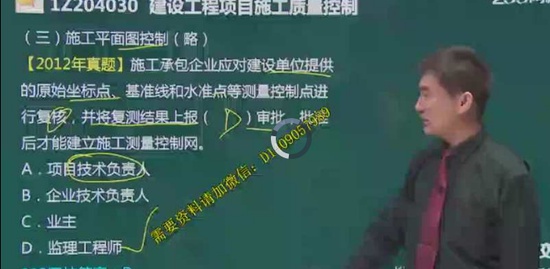 1Z204030 建设工程项目施工质量控制
（三）施工平面图控制（略）
【2012年真题】施工承包企业应对建设单位提供
的原始坐标点、基准线和水准点等测量控制点进
行复核，并将复测结果上报（ D ）审批，批准
后才能建立施工测量控制网。
A．项目技术负责人
B．企业技术负责人
C．业主
D．监理工程师
需要资料请加微信：